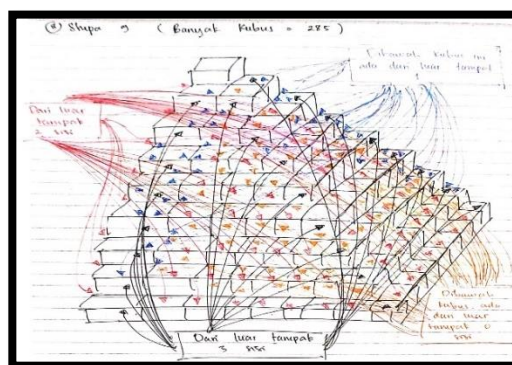 (d) Stupa 9 ( Banyak Kubus = 285 )
Dibawah kubus ini
ada dari luar tampak
1
Dari luar
tampak
2 sisi
Dibawah
kubus ada
dari luar
tampak 0
sisi
Dari luar tampak
3 sisi